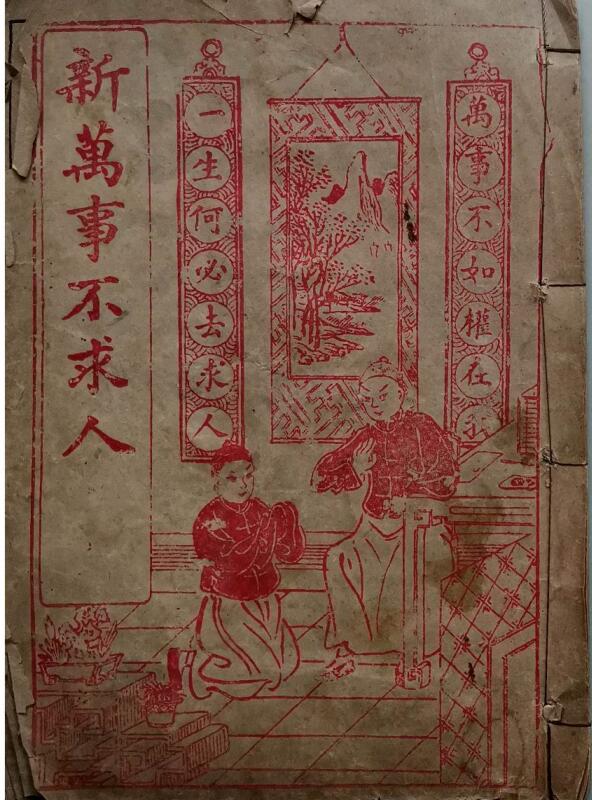 新萬事不求人
萬事不如權在我
一生何必去求人